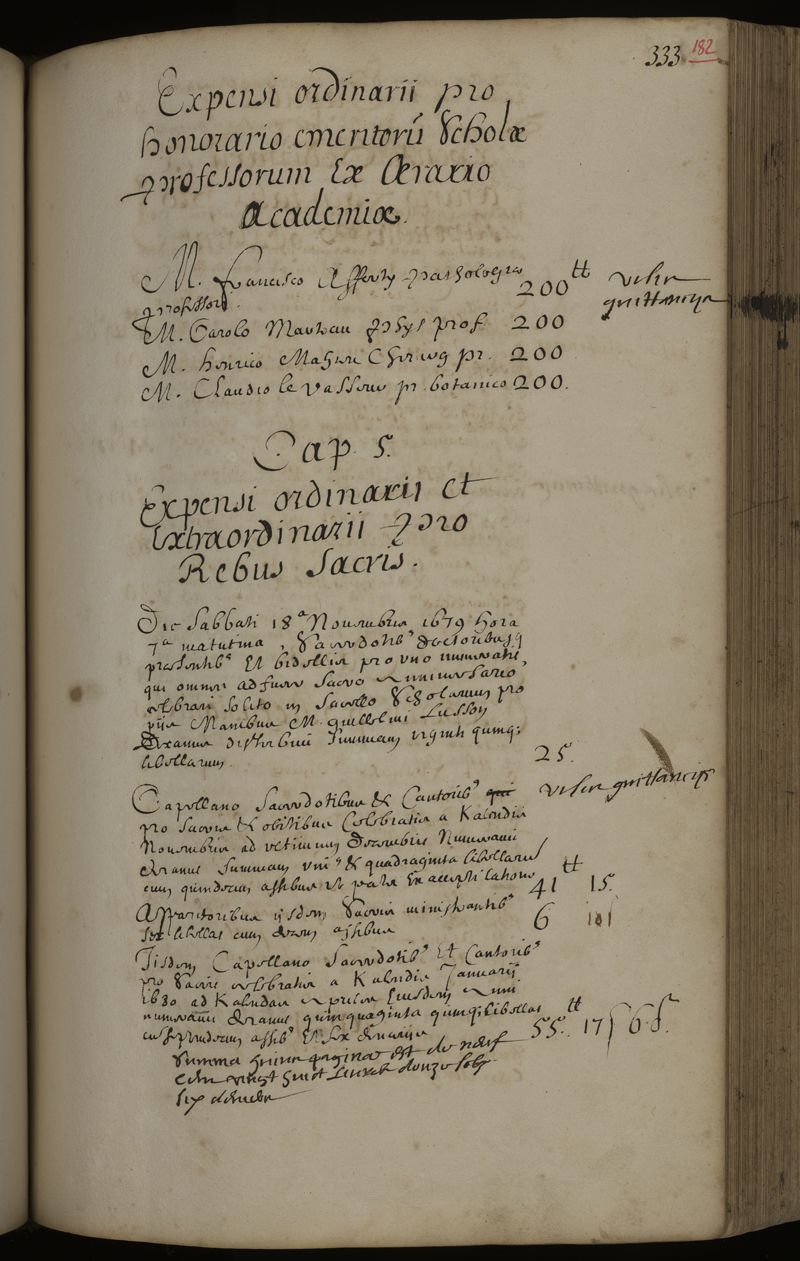 333 182
Expensi ordinarii pro
honorario emeritorũ Scholæ
professorum Ex Ærario
Academiæ.
M. Francisco Afforty pathologiæ
professori. 200 tt
quittancijs
M. Carolo phys prof 200
M. henrico Mahieu Chirurg pr. 200
M. Claudio le Vasseur pr. botanico 200.
Cap. 5.
Expensi ordinarij et
Extraordinarii pro
Rebus Sacris.
Die Sabbati 18ª Nouembris 1679 hora
7ª matutina, Sacerdotibꝰ doctoribusqꝫ
præsentibꝰ Et bidellis pro vno numeratis,
qui omnes adfuere Sacro anniuersario
celebrari solito in Sacello Scholarum pro
pijs Manibus M. guillelmi Lusson
Decanus distribui summam viginti quinqꝫ
libellarum. 25.
Capellano Sacerdotibus Et Cantoribꝰ
quittancijs
pro Sacris Et obitibus Celebratis a Kalendis
Nouembris ad vltimum Decembris Numeraui
decanus Summam vniꝰ Et quadraginta libellarũ
cum quindecim assibus vt patet Ex accepti latione 41 tt 15.
Apparitoribus ijsdem Sacris ministrantibꝰ
sex libellas cum decem assibus 6 10 s
Iisdem Capellano Sacerdotibꝰ Et Cantoribꝰ
pro Sacris celebratis a Kalendis Januarij
1680 ad Kalendas apriles Eiusdem anni
numeraui decanus quinquaginta quinqꝫ libellas
cum assibꝰ Et sex denarijs 55 tt. 17 s 6 d.
Summa huius paginæ est de neuf
cens vingt huict liures douze sols
six deniers